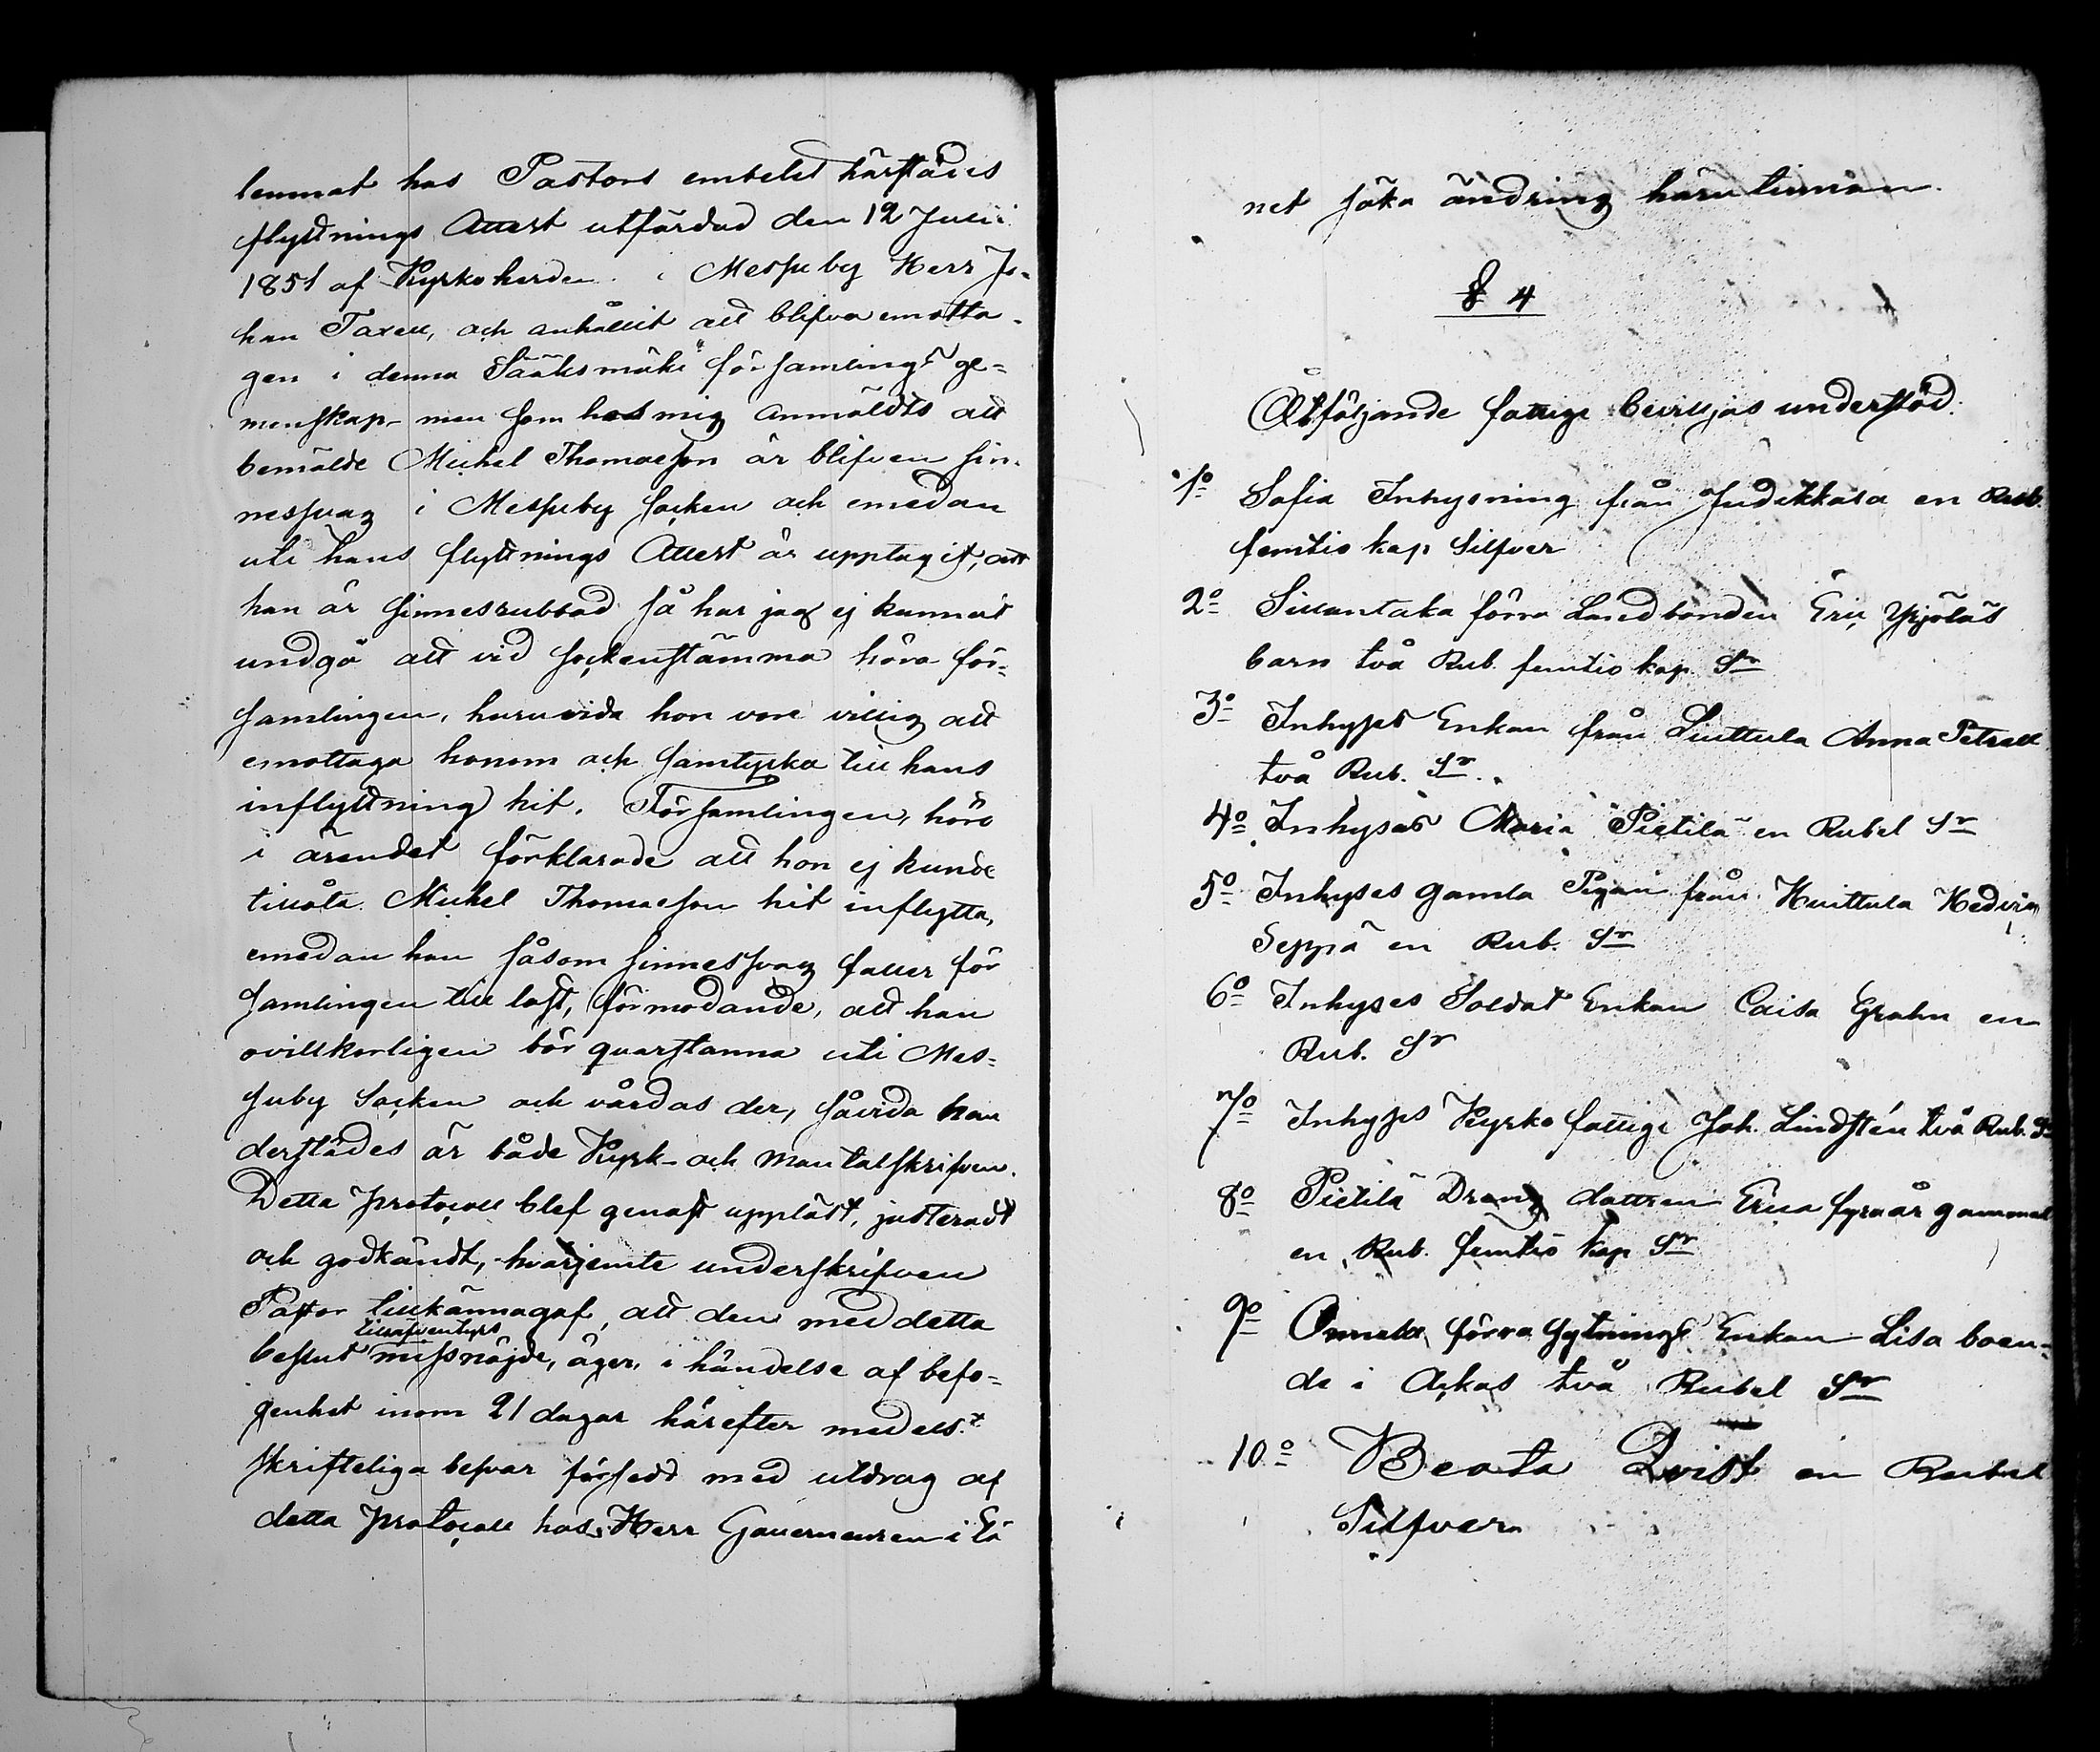 lemnat hos Pastors embetet härstädes
flyttnings Attest utfärdad den 12 Julii
1851 af Kyrkoherden i Messuby Herr Jo-
han Taxell, och anhållit att blifva emotta-
gen i denna Sääksmäki församlings ge-
menskap – men som hos mig anmäldts att
bemälde Michel Thomasson är blifven sin-
nessvag i Messuby Socken och emedan
uti hans flyttnings Attest är upptagit, att
han är sinnesrubbad så har jag ej kunnat
undgå att vid sockenstämma höra för-
samlingen, huruvida hon vore villig att
emottaga honom och samtycka till hans
inflyttning hit. Församlingen, hörd
i ärendet förklarade att hon ej kunde
tillåta Michel Thomasson hit inflytta,
emedan han såsom sinnessvag faller för
samlingen till last, förmodande, att han
ovillkorligen bör quarstanna uti Mes-
suby Socken och vårdas der, såvida han
derstädes är både Kyrk- och mantalskrifven.
Detta protocoll blef genast uppläst, justeradt
och godkändt, hvarjemte underskrifven
Pastor tillkännagaf, att den med detta
tilläfventyrs
beslut missnöjde, äger, i händelse af befo-
genhet inom 21 dagar härefter medelst
skrifteliga besvär försedd med utdrag af
detta protocoll hos Herr Gouverneuren i Lä
net söka ändring härutinnan.
§ 4
Åtföljande fattige beviljas understöd:
1o Sofia Inhysning från Judikkala en Rub.
femtio kop Silfver
2o Sillantaka förra Landbonden Eric Yrjöläs
barn två Rub. femtio kop. Sr
3o Inhyses Enkan från Liuttula Anna Petrell
två Rub. Sr.
4o Inhyses Maria Pietilä en Rubel Sr
5o Inhyses gamla Pigan från Huittula Hedvig
Seppä en Rub. Sr
6o Inhyses Soldat Enkan Caisa Grahn en
Rub. Sr
7o Inhyses Kyrko fattige Joh. Lindstén två Rub. Sr
8o Pietilä Dräng dottren Erica fyra år gammal
en Rub. femtio kop Sr
9o Onnela förra Sytnings Enkan Lisa boen-
de i Ackas två Rubel Sr
10o Beata Qvist en Rubel
Silfver